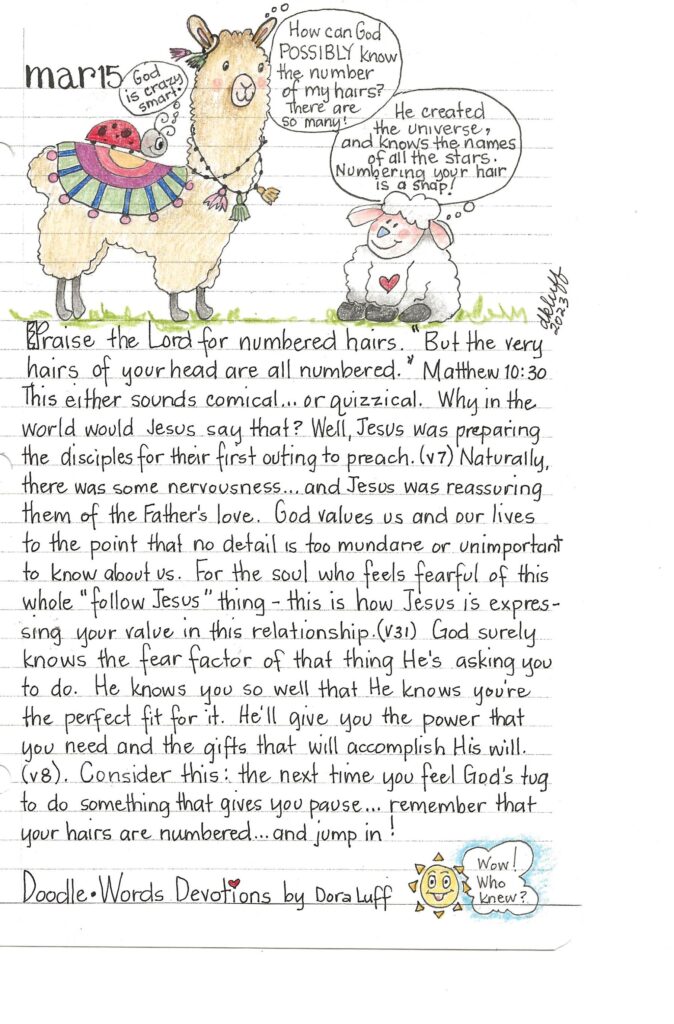 mar15
God
is crazy
smart.
How can God
POSSIBLY know
the number
of my hairs?
There are
so many!
He created
the universe,
and knows the names
of all the stars.
Numbering your hair
is a snap!
dkluff
2023
Praise the Lord for numbered hairs. "But the very
hairs of your head are all numbered." Matthew 10:30
This either sounds comical... or quizzical. Why in the
world would Jesus say that? Well, Jesus was preparing
the disciples for their first outing to preach. (v7) Naturally,
there was some nervousness... and Jesus was reassuring
them of the Father's love. God values us and our lives
to the point that no detail is too mundane or unimportant
to know about us. For the soul who feels fearful of this
whole "follow Jesus" thing - this is how Jesus is expres-
sing your value in this relationship. (v31) God surely
knows the fear factor of that thing He's asking you
to do. He knows you so well that He knows you're
the perfect fit for it. He'll give you the power that
you need and the gifts that will accomplish His will.
(v8). Consider this: the next time you feel God's tug
to do something that gives you pause... remember that
your hairs are numbered... and jump in!
Doodle•Words Devotions by Dora Luff
Wow!
Who
knew?